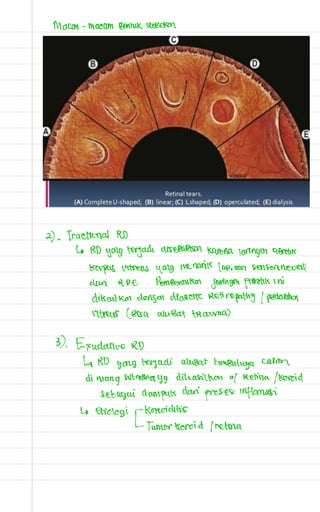 Macam - macam Bentuk Robekan
A
B
C
D
E
Retinal tears.
(A) Complete U-shaped; (B) linear; (C) L shaped; (D) operculated; (E) dialysis
2). Tractional RD
↳ RD yang terjadi disebabkan karena jaringan fibrotic
korpus vitreus yang menarik lapisan sensorineural
dari RPE. Pembentukan jaringan fibrotik ini
dikaitkan dengan diabetic Retinopathy /
vitreus (Bisa akibat trauma)
3). Exudative RD
↳ RD yang terjadi akibat timbulnya cairan
di ruang subretina yg dihasilkan o/ Retina /koroid
sebagai dampak dari proses inflamasi
↳ Etiologi Koroiditis
Tumor koroid /retina